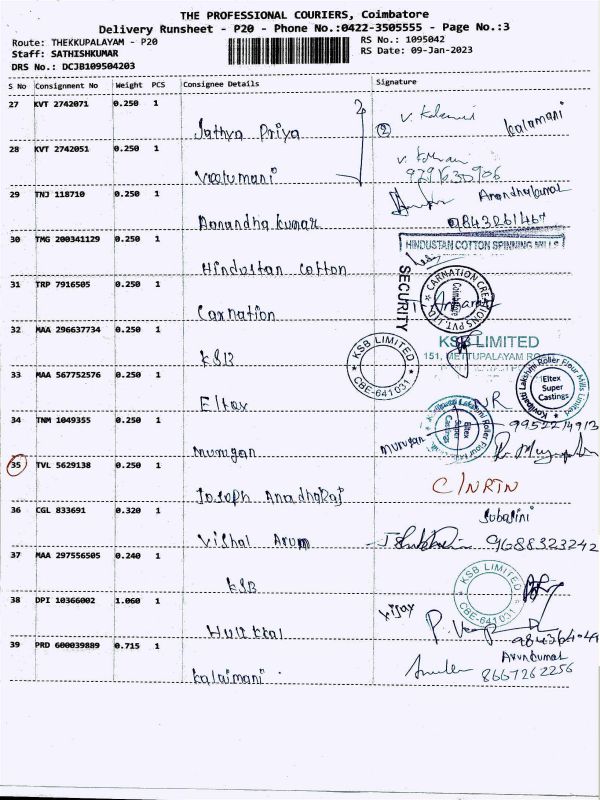 THE PROFESSIONAL COURIERS, Coimbatore
Delivery Runsheet - P20 - Phone No.:0422-3505555 - Page No.:3
Route: THEKKUPALAYAM - P20
Staff: SATHISHKUMAR
DRS No.: DCJB109504203
RS No.: 1095042
RS Date: 09-Jan-2023
S No Consignment No Weight PCS Consignee Details Signature
27 KVT 2742071 0.250 1
Sathya Priya (2) kalamani
28 KVT 2742051 0.250 1
Veelumani
29 TNJ 118710 0.250 1 Anandhakumar
Aanandha kumar 9843261467
30 TMG 200341129 0.250 1 HINDUSTAN COTTON SPINNING MILLS
Hindustan cotton
SECURITY
31 TRP 7916505 0.250 1 CARNATION CREATIONS PVT. LTD. Coimbatore
Carnation
32 MAA 296637734 0.250 1 KSB LIMITED
151, METTUPALAYAM RO
KSB KSB LIMITED CBE-641031
33 MAA 567752576 0.250 1 Kovilpatti Lakshmi Roller Flour Mills Limited Eltex Super Castings
Eltex NR
34 TNM 1049355 0.250 1 9952214913
murugan murugan
35 TVL 5629138 0.250 1 C/NRTN
Joseph Anadharaj
36 CGL 833691 0.320 1 Subasini
Vishal Arum 9688323242
37 MAA 297556505 0.240 1 KSB LIMITED CBE-641031
KSB
38 DPI 10366002 1.060 1 Vijay
39 PRD 600039889 0.715 1 Arunkumar
kalaimani 8667262256